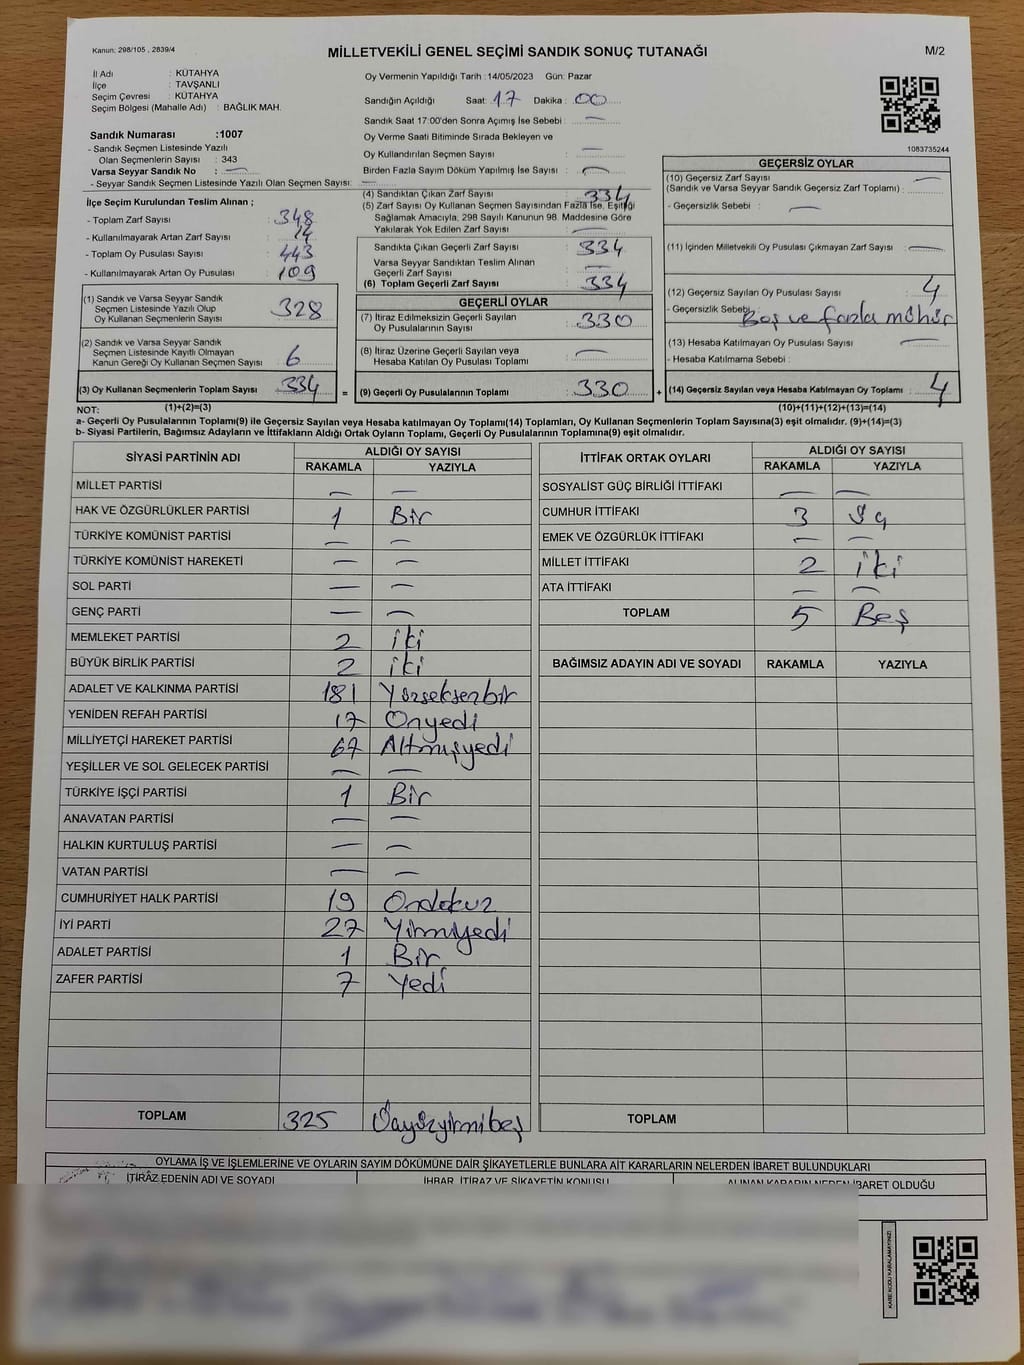 Kanun: 298/105 , 2839/4
MİLLETVEKİLİ GENEL SEÇİMİ SANDIK SONUÇ TUTANAĞI
M/2
İl Adı : KÜTAHYA
İlçe : TAVŞANLI
Seçim Çevresi : KÜTAHYA
Seçim Bölgesi (Mahalle Adı) : BAĞLIK MAH.
Sandık Numarası :1007
- Sandık Seçmen Listesinde Yazılı
Olan Seçmenlerin Sayısı : 343
Varsa Seyyar Sandık No : —
- Seyyar Sandık Seçmen Listesinde Yazılı Olan Seçmen Sayısı: —
Oy Vermenin Yapıldığı Tarih :14/05/2023 Gün: Pazar
Sandığın Açıldığı Saat: 17 Dakika : 00
Sandık Saat 17:00'den Sonra Açımış İse Sebebi : —
Oy Verme Saati Bitiminde Sırada Bekleyen ve
Oy Kullandırılan Seçmen Sayısı : —
Birden Fazla Sayım Döküm Yapılmış İse Sayısı : —
1083735244
İlçe Seçim Kurulundan Teslim Alınan ;
- Toplam Zarf Sayısı : 348
- Kullanılmayarak Artan Zarf Sayısı : 14
- Toplam Oy Pusulası Sayısı : 443
- Kullanılmayarak Artan Oy Pusulası : 109
(1) Sandık ve Varsa Seyyar Sandık
Seçmen Listesinde Yazılı Olup
Oy Kullanan Seçmenlerin Sayısı : 328
(2) Sandık ve Varsa Seyyar Sandık
Seçmen Listesinde Kayıtlı Olmayan
Kanun Gereği Oy Kullanan Seçmen Sayısı : 6
(3) Oy Kullanan Seçmenlerin Toplam Sayısı : 334
(4) Sandıktan Çıkan Zarf Sayısı : 334
(5) Zarf Sayısı Oy Kullanan Seçmen Sayısından Fazla İse, Eşitliği
Sağlamak Amacıyla, 298 Sayılı Kanunun 98. Maddesine Göre
Yakılarak Yok Edilen Zarf Sayısı : —
Sandıkta Çıkan Geçerli Zarf Sayısı : 334
Varsa Seyyar Sandıktan Teslim Alınan
Geçerli Zarf Sayısı : —
(6) Toplam Geçerli Zarf Sayısı : 334
GEÇERLİ OYLAR
(7) İtiraz Edilmeksizin Geçerli Sayılan
Oy Pusulalarının Sayısı : 330
(8) İtiraz Üzerine Geçerli Sayılan veya
Hesaba Katılan Oy Pusulası Toplamı : —
= (9) Geçerli Oy Pusulalarının Toplamı : 330
GEÇERSİZ OYLAR
(10) Geçersiz Zarf Sayısı : —
(Sandık ve Varsa Seyyar Sandık Geçersiz Zarf Toplamı) :
- Geçersizlik Sebebi : —
(11) İçinden Milletvekili Oy Pusulası Çıkmayan Zarf Sayısı : —
(12) Geçersiz Sayılan Oy Pusulası Sayısı : 4
- Geçersizlik Sebebi : Boş ve fazla mühür
(13) Hesaba Katılmayan Oy Pusulası Sayısı : —
- Hesaba Katılmama Sebebi :
+ (14) Geçersiz Sayılan veya Hesaba Katılmayan Oy Toplamı : 4
NOT: (1)+(2)=(3)
(10)+(11)+(12)+(13)=(14)
a- Geçerli Oy Pusulalarının Toplamı(9) ile Geçersiz Sayılan veya Hesaba katılmayan Oy Toplamı(14) Toplamları, Oy Kullanan Seçmenlerin Toplam Sayısına(3) eşit olmalıdır. (9)+(14)=(3)
b- Siyasi Partilerin, Bağımsız Adayların ve İttifakların Aldığı Ortak Oyların Toplamı, Geçerli Oy Pusulalarının Toplamına(9) eşit olmalıdır.
SİYASİ PARTİNİN ADI
ALDIĞI OY SAYISI
RAKAMLA YAZIYLA
MİLLET PARTİSİ — —
HAK VE ÖZGÜRLÜKLER PARTİSİ 1 Bir
TÜRKİYE KOMÜNİST PARTİSİ — —
TÜRKİYE KOMÜNİST HAREKETİ — —
SOL PARTİ — —
GENÇ PARTİ — —
MEMLEKET PARTİSİ 2 iki
BÜYÜK BİRLİK PARTİSİ 2 iki
ADALET VE KALKINMA PARTİSİ 181 Yüzseksenbir
YENİDEN REFAH PARTİSİ 17 Onyedi
MİLLİYETÇİ HAREKET PARTİSİ 67 Altmışyedi
YEŞİLLER VE SOL GELECEK PARTİSİ — —
TÜRKİYE İŞÇİ PARTİSİ 1 Bir
ANAVATAN PARTİSİ — —
HALKIN KURTULUŞ PARTİSİ — —
VATAN PARTİSİ — —
CUMHURİYET HALK PARTİSİ 19 Ondokuz
İYİ PARTİ 27 Yirmiyedi
ADALET PARTİSİ 1 Bir
ZAFER PARTİSİ 7 Yedi
TOPLAM 325 Üçyüzyirmibeş
İTTİFAK ORTAK OYLARI
ALDIĞI OY SAYISI
RAKAMLA YAZIYLA
SOSYALİST GÜÇ BİRLİĞİ İTTİFAKI — —
CUMHUR İTTİFAKI 3 Üç
EMEK VE ÖZGÜRLÜK İTTİFAKI — —
MİLLET İTTİFAKI 2 iki
ATA İTTİFAKI — —
TOPLAM 5 Beş
BAĞIMSIZ ADAYIN ADI VE SOYADI RAKAMLA YAZIYLA
TOPLAM
OYLAMA İŞ VE İŞLEMLERİNE VE OYLARIN SAYIM DÖKÜMÜNE DAİR ŞİKAYETLERLE BUNLARA AİT KARARLARIN NELERDEN İBARET BULUNDUKLARI
İTİRAZ EDENİN ADI VE SOYADI
İHBAR, İTİRAZ VE ŞİKAYETİN KONUSU
ALINAN KARARIN NEDEN İBARET OLDUĞU
KARE KODU KARALAMAYINIZ!